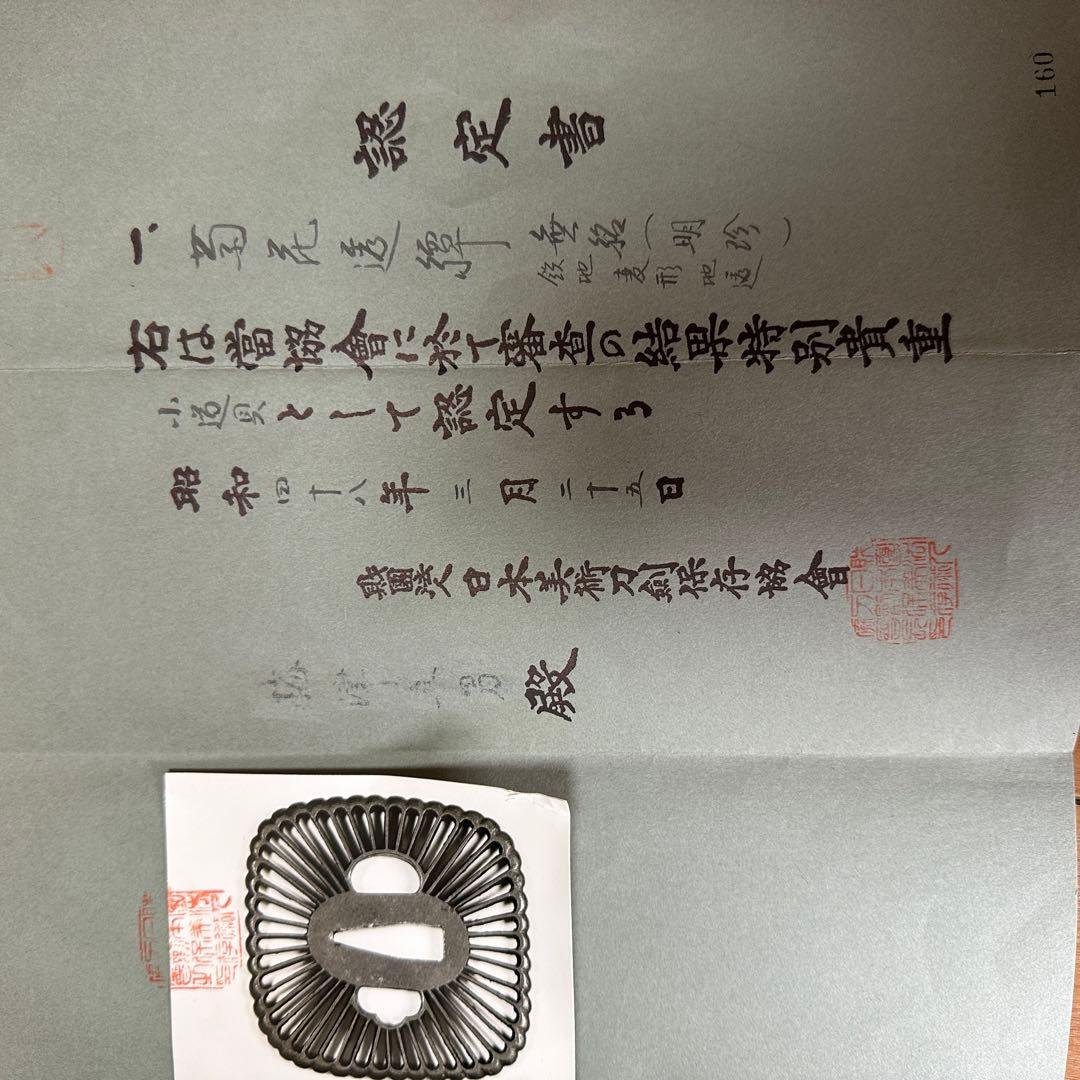 160
認定書
一、菊花透鐔 無銘(明珍)
鉄地 地透
右は當協會に於て審査の結果特別貴重
小道具として認定する
昭和四十八年三月二十五日
財團法人日本美術刀剣保存協會
殿